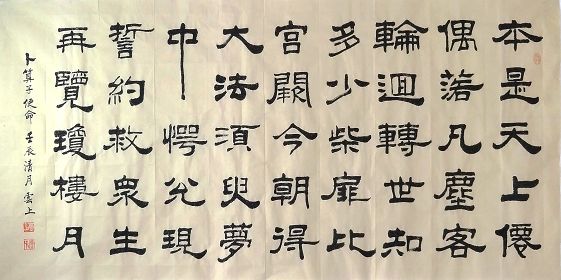 本是天上僊
偶落凡塵客
輪迴轉世知
多少柴扉比
宮闕今朝得
大法須臾夢
中愕兌現
誓約救眾生
再覽瓊樓月
卜算子使命 壬辰清月雲上